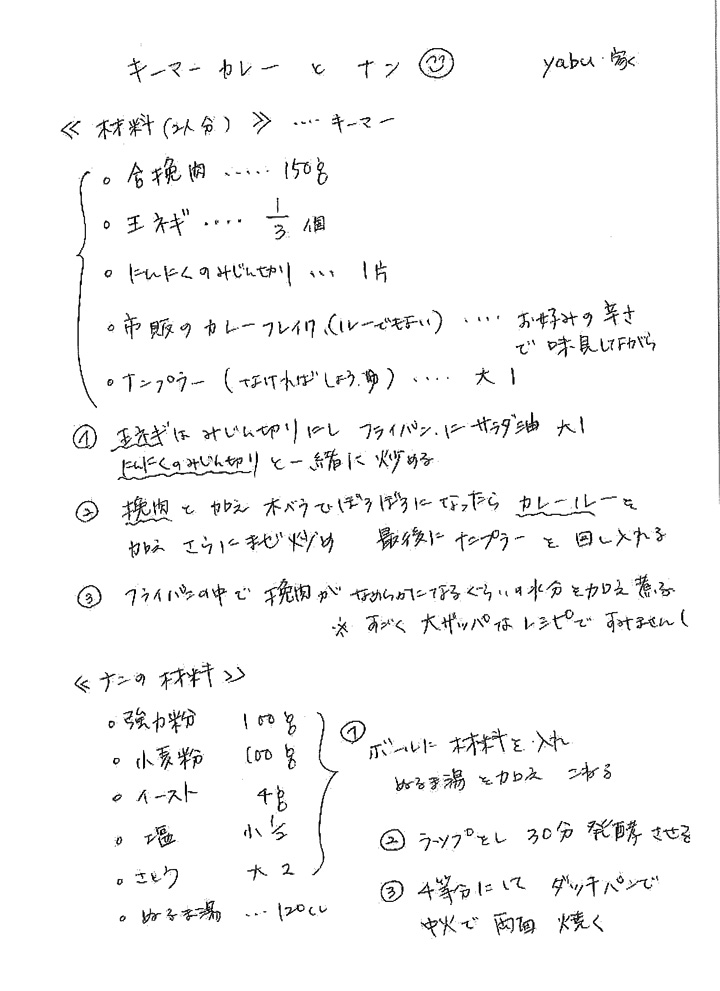 キーマーカレーとナン yabu家
≪材料(2人分)≫ ‥‥キーマー
○合挽肉 ‥‥‥ 150g
○玉ネギ ‥‥ 1/3 個
○にんにくのみじん切り ‥‥ 1片
○市販のカレーフレイク、(ルーでもよい) ‥‥ お好みの辛さ
で味見しながら
○ナンプラー(なければしょうゆ) ‥‥ 大1
① 玉ネギはみじん切りにし フライパンにサラダ油 大1
にんにくのみじん切りと一緒に炒める
② 挽肉を加え 木ベラでぼろぼろになったら カレールーを
加え さらにまぜ炒め 最後にナンプラーを回し入れる
③ フライパンの中で挽肉がなめらかになるぐらいの水分を加え煮る
※ すごく大ザッパなレシピですみません(
≪ナンの材料≫
○強力粉 100g
○小麦粉 100g
○イースト 4g
○塩 小1/2
○さとう 大2
○ぬるま湯 ‥‥120cc
① ボールに材料を入れ
ぬるま湯を加え こねる
② ラップをし 30分 発酵させる
③ 4等分にして ダッチパンで
中火で両面焼く